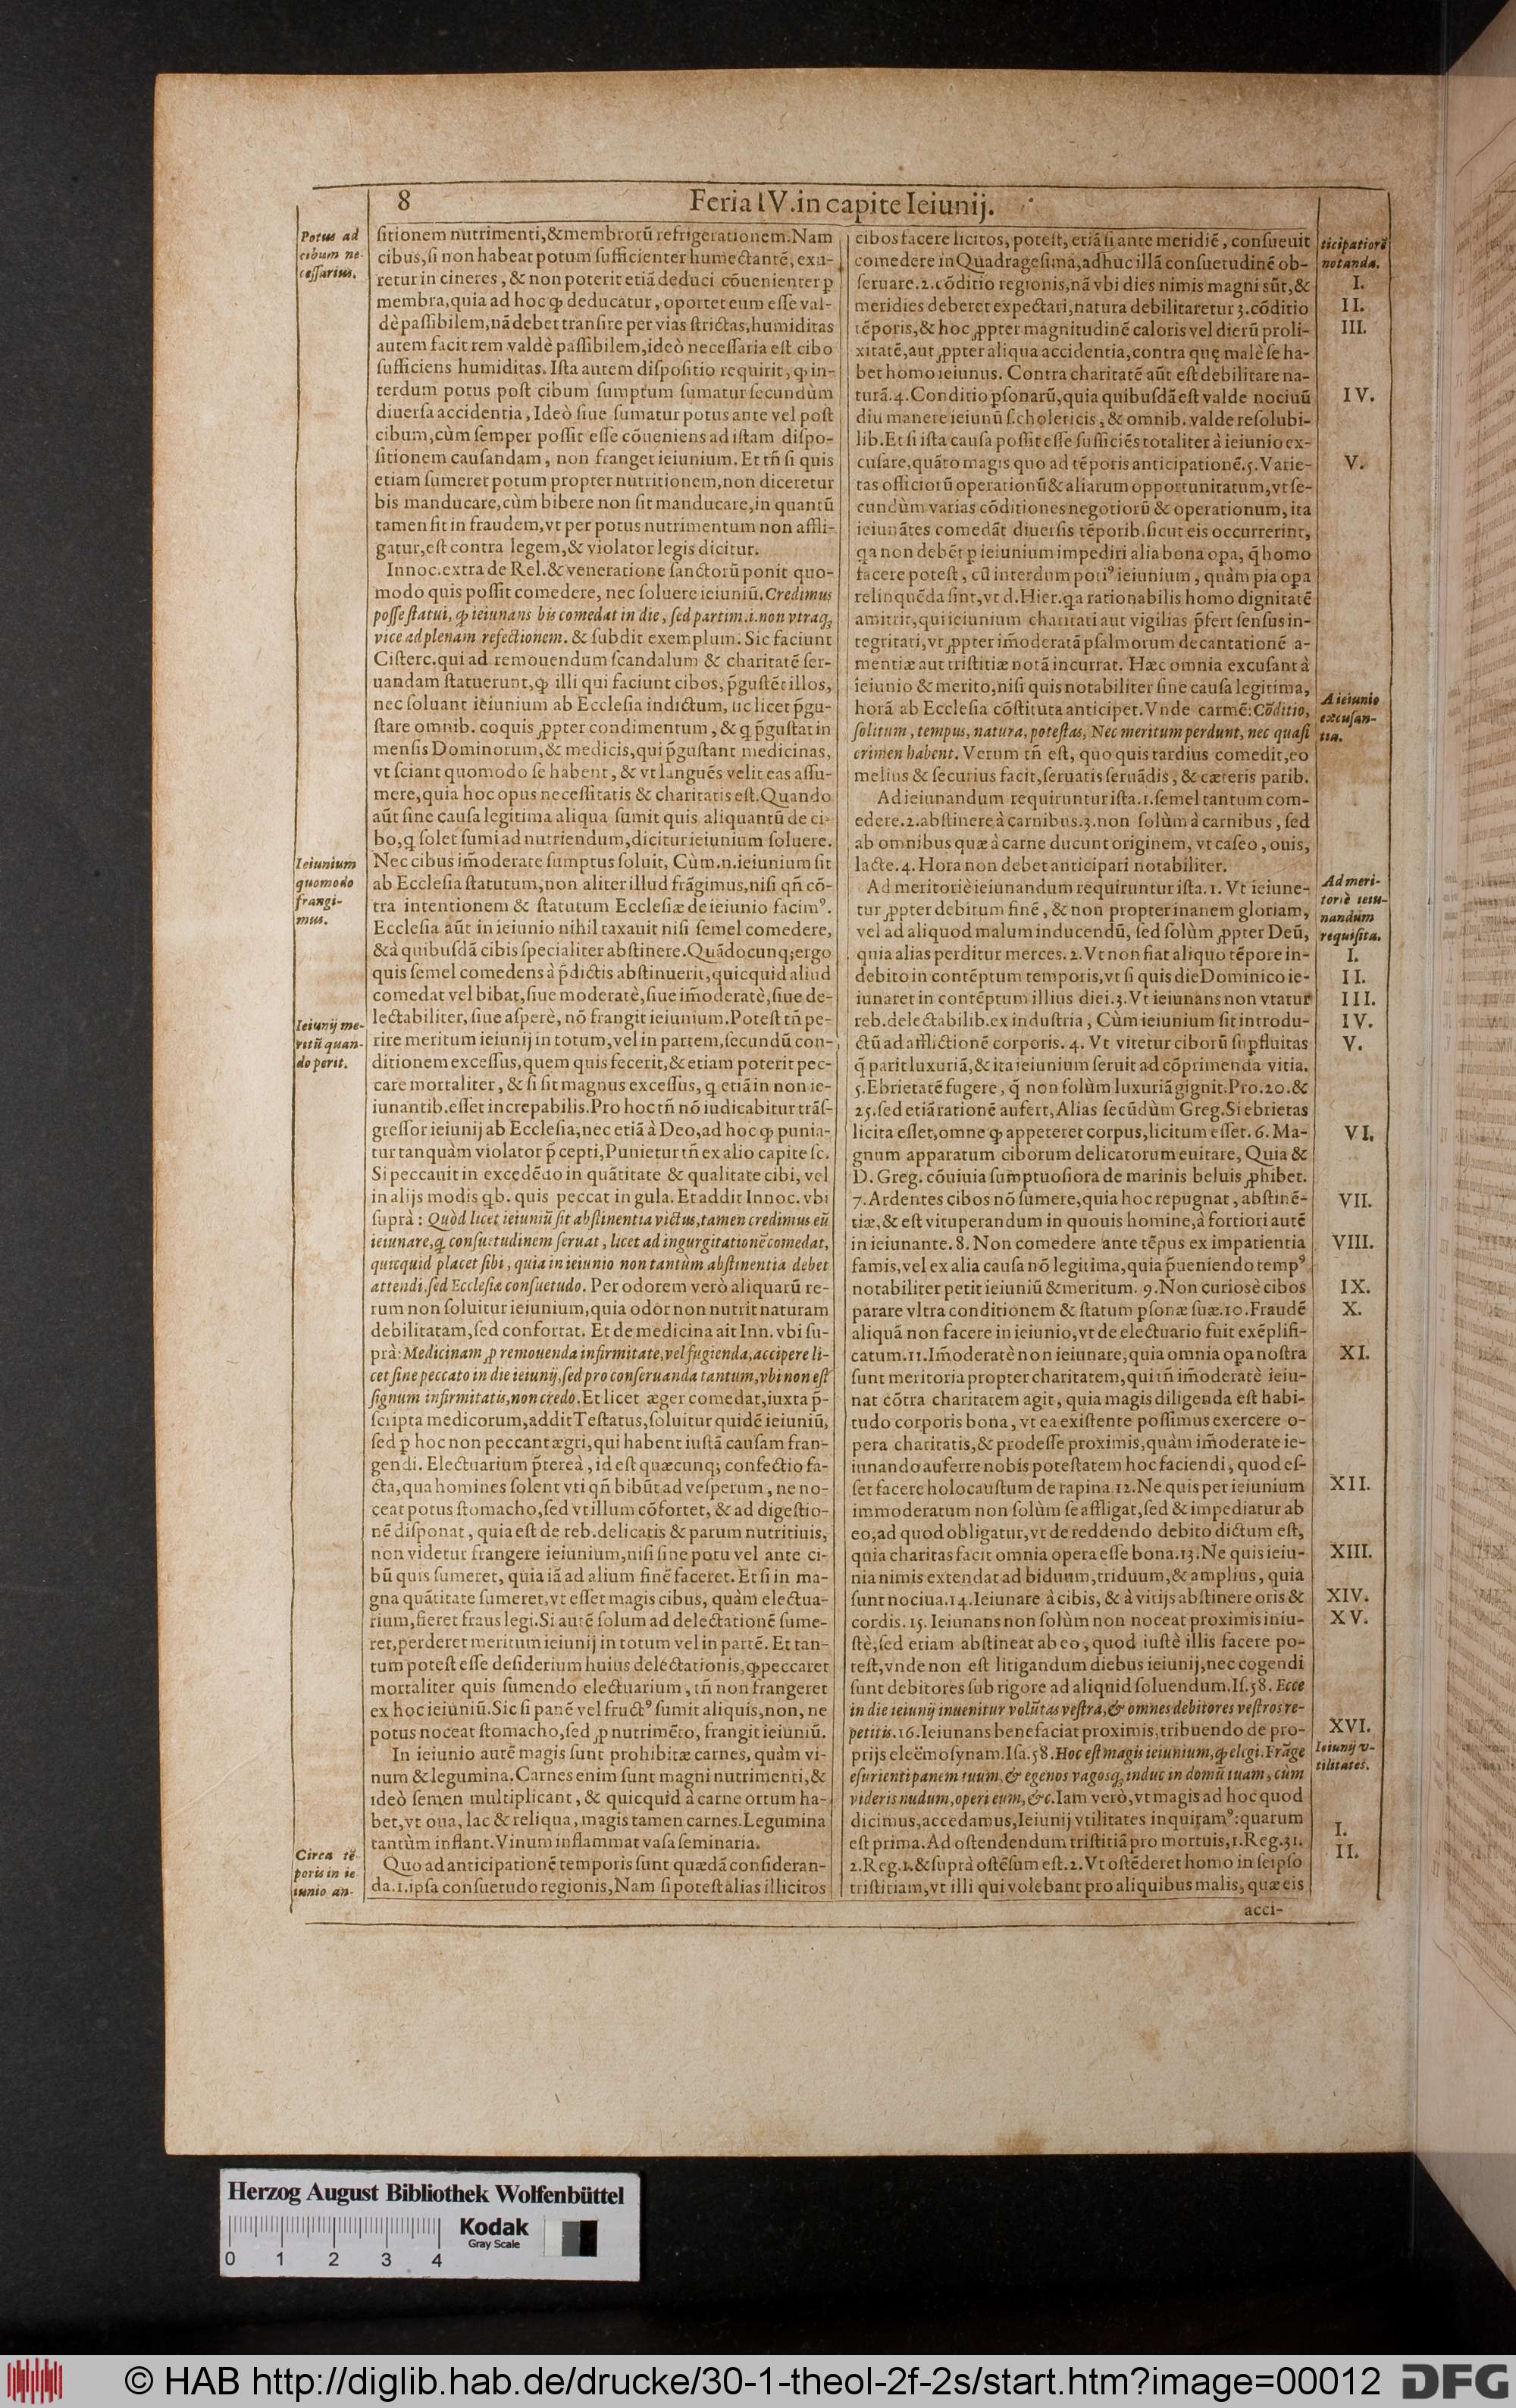 8
Feria IV. in capite Ieiunij.
Potus ad
cibum ne-
cessarius.
ſitionem nutrimenti,&membrorũ refrigerationem.Nam
cibus,ſi non habeat potum ſufficienter humectantẽ, exu-
retur in cineres, & non poterit etiã deduci cõuenienter ꝑ
membra,quia ad hoc ꝙ deducatur, oportet eum eſſe val-
dè paſſibilem,nã debet tranſire per vias ſtrictas,humiditas
autem facit rem valdè paſſibilem,ideò neceſſaria eſt cibo
ſufficiens humiditas. Iſta autem diſpoſitio requirit, ꝙ in-
terdum potus poſt cibum ſumptum ſumatur ſecundùm
diuerſa accidentia, Ideò ſiue ſumatur potus ante vel poſt
cibum,cùm ſemper poſſit eſſe cõueniens ad iſtam diſpo-
ſitionem cauſandam, non franget ieiunium. Et tñ ſi quis
etiam ſumeret potum propter nutritionem,non diceretur
bis manducare,cùm bibere non ſit manducare,in quantũ
tamen ſit in fraudem,vt per potus nutrimentum non affli-
gatur,eſt contra legem,& violator legis dicitur.
Innoc.extra de Rel.& veneratione ſanctorũ ponit quo-
modo quis poſſit comedere, nec ſoluere ieiuniũ. Credimus
poſſe ſtatui, ꝙ ieiunans bis comedat in die, ſed partim.i.non vtraq;
vice ad plenam refectionem. & ſubdit exemplum. Sic faciunt
Ciſterc.qui ad remouendum ſcandalum & charitatẽ ſer-
uandam ſtatuerunt,ꝙ illi qui faciunt cibos, p̃guſtẽt illos,
nec ſoluant ieiunium ab Eccleſia indictum, sic licet p̃gu-
ſtare omnib. coquis ꝓpter condimentum, & q p̃guſtat in
menſis Dominorum,& medicis,qui p̃guſtant medicinas,
vt ſciant quomodo ſe habent, & vt languẽs velit eas aſſu-
mere,quia hoc opus neceſſitatis & charitatis eſt.Quando
aũt ſine cauſa legitima aliqua ſumit quis aliquantũ de ci-
bo,q ſolet ſumi ad nutriendum,dicitur ieiunium ſoluere.
Ieiunium
quomodo
frangi-
mus.
Nec cibus im̃oderate ſumptus ſoluit, Cùm.n.ieiunium ſit
ab Eccleſia ſtatutum,non aliter illud frãgimus,niſi qñ cõ-
tra intentionem & ſtatutum Eccleſiæ de ieiunio facimꝰ.
Eccleſia aũt in ieiunio nihil taxauit niſi ſemel comedere,
& à quibuſdã cibis ſpecialiter abſtinere.Quãdocunq;ergo
quis ſemel comedens à p̃dictis abſtinuerit,quicquid aliud
comedat vel bibat,ſiue moderatè,ſiue im̃oderatè,ſiue de-
Ieiunij me-
ritũ quan-
do perit.
lectabiliter, ſiue aſperè, nõ frangit ieiunium.Poteſt tñ pe-
rire meritum ieiunij in totum,vel in partem,ſecundũ con-
ditionem exceſſus,quem quis fecerit,& etiam poterit pec-
care mortaliter, & ſi ſit magnus exceſſus, q etiã in non ie-
iunantib.eſſet increpabilis.Pro hoc tñ nõ iudicabitur trãſ-
greſſor ieiunij ab Eccleſia,nec etiã à Deo,ad hoc ꝙ punia-
tur tanquàm violator p̃cepti,Punietur tñ ex alio capite ſc.
Si peccauit in excedẽdo in quãtitate & qualitate cibi, vel
in alijs modis qb. quis peccat in gula. Et addit Innoc. vbi
ſuprà: Quòd licet ieiuniũ ſit abſtinentia victus,tamen credimus eũ
ieiunare,q conſuetudinem ſeruat, licet ad ingurgitationẽ comedat,
quicquid placet ſibi, quia in ieiunio non tantùm abſtinentia debet
attendi,ſed Eccleſiæ conſuetudo. Per odorem verò aliquarũ re-
rum non ſoluitur ieiunium,quia odor non nutrit naturam
debilitatam,ſed confortat. Et de medicina ait Inn. vbi ſu-
prà: Medicinam ꝓ remouenda infirmitate,vel fugienda,accipere li-
cet ſine peccato in die ieiunij,ſed pro conſeruanda tantum,vbi non eſt
ſignum infirmitatis,non credo. Et licet æger comedat,iuxta p̃-
ſcripta medicorum,addit Teſtatus,ſoluitur quidẽ ieiuniũ,
ſed ꝑ hoc non peccant ægri,qui habent iuſtã cauſam fran-
gendi. Electuarium p̃tereà, id eſt quæcunq; confectio fa-
cta,qua homines ſolent vti qñ bibũt ad veſperum, ne no-
ceat potus ſtomacho,ſed vt illum cõfortet, & ad digeſtio-
nẽ diſponat, quia eſt de reb.delicatis & parum nutritiuis,
non videtur frangere ieiunium,niſi ſine potu vel ante ci-
bũ quis ſumeret, quia iã ad alium finẽ faceret. Et ſi in ma-
gna quãtitate ſumeret,vt eſſet magis cibus, quàm electua-
rium,fieret fraus legi.Si autẽ ſolum ad delectationẽ ſume-
ret,perderet meritum ieiunij in totum vel in partẽ. Et tan-
tum poteſt eſſe deſiderium huius delectationis,ꝙ peccaret
mortaliter quis ſumendo electuarium, tñ non frangeret
ex hoc ieiuniũ.Sic ſi panẽ vel fructꝰ ſumit aliquis,non, ne
potus noceat ſtomacho,ſed ꝓ nutrimẽto, frangit ieiuniũ.
In ieiunio autẽ magis ſunt prohibitæ carnes, quàm vi-
num & legumina.Carnes enim ſunt magni nutrimenti,&
ideò ſemen multiplicant, & quicquid à carne ortum ha-
bet,vt oua, lac & reliqua, magis tamen carnes.Legumina
tantùm inflant.Vinum inflammat vaſa ſeminaria.
Circa tẽ-
poris in ie
iunio an-
Quo ad anticipationẽ temporis ſunt quædã conſideran-
da.1.ipſa conſuetudo regionis,Nam ſi poteſt alias illicitos
cibos facere licitos, poteſt, etiã ſi ante meridiẽ, conſueuit
comedere in Quadrageſima, adhuc illã conſuetudinẽ ob-
ſeruare.2.cõditio regionis,nã vbi dies nimis magni sũt,&
meridies deberet expectari,natura debilitaretur 3.cõditio
tẽporis,& hoc ꝓpter magnitudinẽ caloris vel dierũ proli-
xitatẽ,aut ꝓpter aliqua accidentia,contra quę malè ſe ha-
bet homo ieiunus. Contra charitatẽ aũt eſt debilitare na-
turã.4.Conditio ꝑſonarũ,quia quibuſdã eſt valde nociuũ
diu manere ieiunũ ſ.cholericis, & omnib. valde reſolubi-
lib.Et ſi iſta cauſa poſſit eſſe ſufficiẽs totaliter à ieiunio ex-
cuſare,quãto magis quo ad tẽporis anticipationẽ.5.Varie-
tas officiorũ operationũ & aliarum opportunitatum,vt ſe-
cundùm varias cõditiones negotiorũ & operationum, ita
ieiunãtes comedãt diuerſis tẽporib.ſicut eis occurrerint,
qa non debẽt ꝑ ieiunium impediri alia bona oꝑa, q̃ homo
facere poteſt, cũ interdum potiꝰ ieiunium, quàm pia oꝑa
relinquẽda ſint,vt d.Hier.qa rationabilis homo dignitatẽ
amittit,qui ieiunium charitati aut vigilias p̃fert ſenſus in-
tegritati,vt ꝓpter im̃oderatã pſalmorum decantationẽ a-
mentiæ aut triſtitiæ notã incurrat. Hæc omnia excuſant à
ieiunio & merito,niſi quis notabiliter ſine cauſa legitima,
horã ab Eccleſia cõſtituta anticipet.Vnde carmẽ: Cõditio,
ſolitum, tempus, natura, poteſtas, Nec meritum perdunt, nec quaſi
crimen habent. Verum tñ eſt, quo quis tardius comedit,eo
melius & ſecurius facit,ſeruatis ſeruãdis, & cæteris parib.
Ad ieiunandum requiruntur iſta.1.ſemel tantum com-
edere.2.abſtinere à carnibus.3.non ſolùm à carnibus, ſed
ab omnibus quæ à carne ducunt originem, vt caſeo, ouis,
lacte.4. Hora non debet anticipari notabiliter.
Ad meritoriè ieiunandum requiruntur iſta.1. Vt ieiune-
tur ꝓpter debitum finẽ, & non propter inanem gloriam,
vel ad aliquod malum inducendũ, ſed ſolùm ꝓpter Deũ,
quia alias perditur merces. 2. Vt non fiat aliquo tẽpore in-
debito in contẽptum temporis,vt ſi quis die Dominico ie-
iunaret in contẽptum illius diei.3.Vt ieiunans non vtatur
reb.delectabilib.ex induſtria, Cùm ieiunium ſit introdu-
ctũ ad afflictionẽ corporis. 4. Vt vitetur ciborũ ſuꝑfluitas
q̃ parit luxuriã,& ita ieiunium ſeruit ad cõprimenda vitia.
5.Ebrietatẽ fugere, q̃ non ſolùm luxuriã gignit.Pro.20.&
25.ſed etiã rationẽ aufert, Alias ſecũdùm Greg.Si ebrietas
licita eſſet,omne ꝙ appeteret corpus,licitum eſſet. 6. Ma-
gnum apparatum ciborum delicatorum euitare, Quia &
D. Greg. cõuiuia ſumptuoſiora de marinis beluis ꝓhibet.
7.Ardentes cibos nõ ſumere,quia hoc repugnat, abſtinẽ-
tiæ, & eſt vituperandum in quouis homine,à fortiori autẽ
in ieiunante. 8. Non comedere ante tẽpus ex impatientia
famis,vel ex alia cauſa nõ legitima,quia p̃ueniendo tempꝰ
notabiliter petit ieiuniũ & meritum. 9.Non curiosè cibos
parare vltra conditionem & ſtatum ꝑſonæ ſuæ.10.Fraudẽ
aliquã non facere in ieiunio,vt de electuario fuit exẽplifi-
catum.11.Im̃oderatè non ieiunare,quia omnia oꝑa noſtra
ſunt meritoria propter charitatem,qui tñ im̃oderatè ieiu-
nat cõtra charitatem agit, quia magis diligenda eſt habi-
tudo corporis bona, vt ea exiſtente poſſimus exercere o-
pera charitatis,& prodeſſe proximis,quàm im̃oderate ie-
iunando auferre nobis poteſtatem hoc faciendi, quod eſ-
ſet facere holocauſtum de rapina.12.Ne quis per ieiunium
immoderatum non ſolùm ſe affligat,ſed & impediatur ab
eo,ad quod obligatur,vt de reddendo debito dictum eſt,
quia charitas facit omnia opera eſſe bona.13.Ne quis ieiu-
nia nimis extendat ad biduum,triduum,& amplius, quia
ſunt nociua.14.Ieiunare à cibis, & à vitijs abſtinere oris &
cordis.15.Ieiunans non ſolùm non noceat proximis iniu-
ſtè,ſed etiam abſtineat ab eo, quod iuſtè illis facere po-
teſt,vnde non eſt litigandum diebus ieiunij,nec cogendi
ſunt debitores ſub rigore ad aliquid ſoluendum.Iſ.58. Ecce
in die ieiunij inuenitur volũtas veſtra,& omnes debitores veſtros re-
petitis.16.Ieiunans benefaciat proximis,tribuendo de pro-
prijs eleëmoſynam.Iſa.58. Hoc eſt magis ieiunium,ꝙ elegi. Frãge
eſurienti panem tuum,& egenos vagosq; induc in domũ tuam, cùm
videris nudum,operi eum,&c. Iam verò,vt magis ad hoc quod
dicimus,accedamus,Ieiunij vtilitates inquiramꝰ:quarum
eſt prima.Ad oſtendendum triſtitiã pro mortuis,1.Reg.31.
2.Reg.1.& ſuprà oſtẽſum eſt.2.Vt oſtẽderet homo in ſeipſo
triſtitiam,vt illi qui volebant pro aliquibus malis, quæ eis
acci-
ticipationẽ
notanda.
I.
II.
III.
IV.
V.
A ieiunio
excuſan-
tia.
Ad meri-
toriè ieiu-
nandum
requiſita.
I.
II.
III.
IV.
V.
VI.
VII.
VIII.
IX.
X.
XI.
XII.
XIII.
XIV.
XV.
XVI.
Ieiunij v-
tilitates.
I.
II.
Herzog August Bibliothek Wolfenbüttel
Kodak
Gray Scale
0 1 2 3 4
© HAB http://diglib.hab.de/drucke/30-1-theol-2f-2s/start.htm?image=00012
DFG